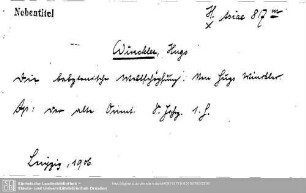 Nebentitel
H. Asiae 817 m
x
Winckler, Hugo
Die babylonische Weltschöpfung. Von Hugo Winckler.
Aus: Der alte Orient. 8. Jahrg. 1. H.
Leipzig, 1906
Sächsische Landesbibliothek -
Staats- und Universitätsbibliothek Dresden